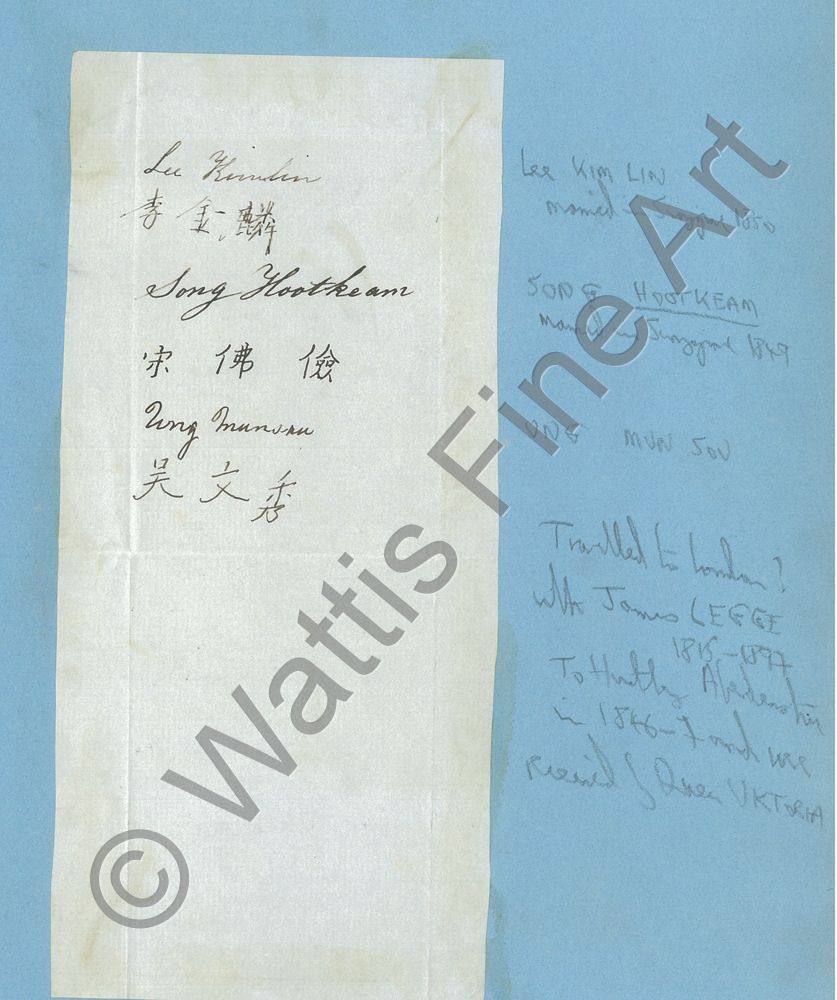 Lee Kimlin
李金麟
Song Hootkeam
宋佛儉
Ung Munsou
吴文秀
Lee KIM LIN
married in Singapore 1850
SONG HOOTKEAM
married in Singapore 1849
UNG MUN SOU
Travelled to London?
with James LEGGE
1815-1897
To Huntly Aberdenshire
in 1846-7 and were
received by Queen VIKTORIA
© Wattis Fine Art